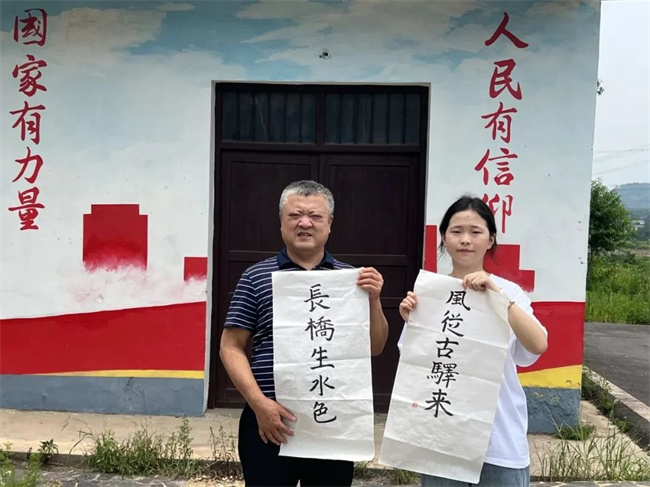 人民有信仰
國家有力量
風從古驛来
長橋生水色